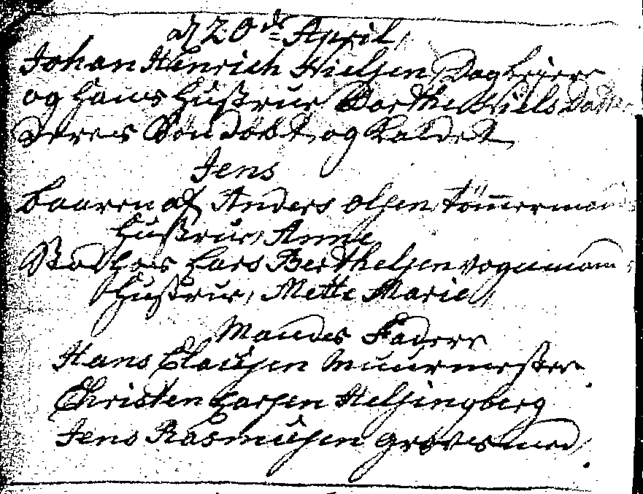 d 20de April,
Johan Henrich Nielsen, Dagleiere
og hans Hustrue Dorthe Niels Dat
deres Søn døbt, og kaldet
Jens
baaren af Anders Olsen, tömermand
Hustrue, Anne
Stod hos Lars Berthelsen vognmand
Hustrue, Mette Marie,
Mandes Fadere
Hans Clausen Muurmester
Christen Larsen Helsingberg
Jens Rasmusen Grovsmed,